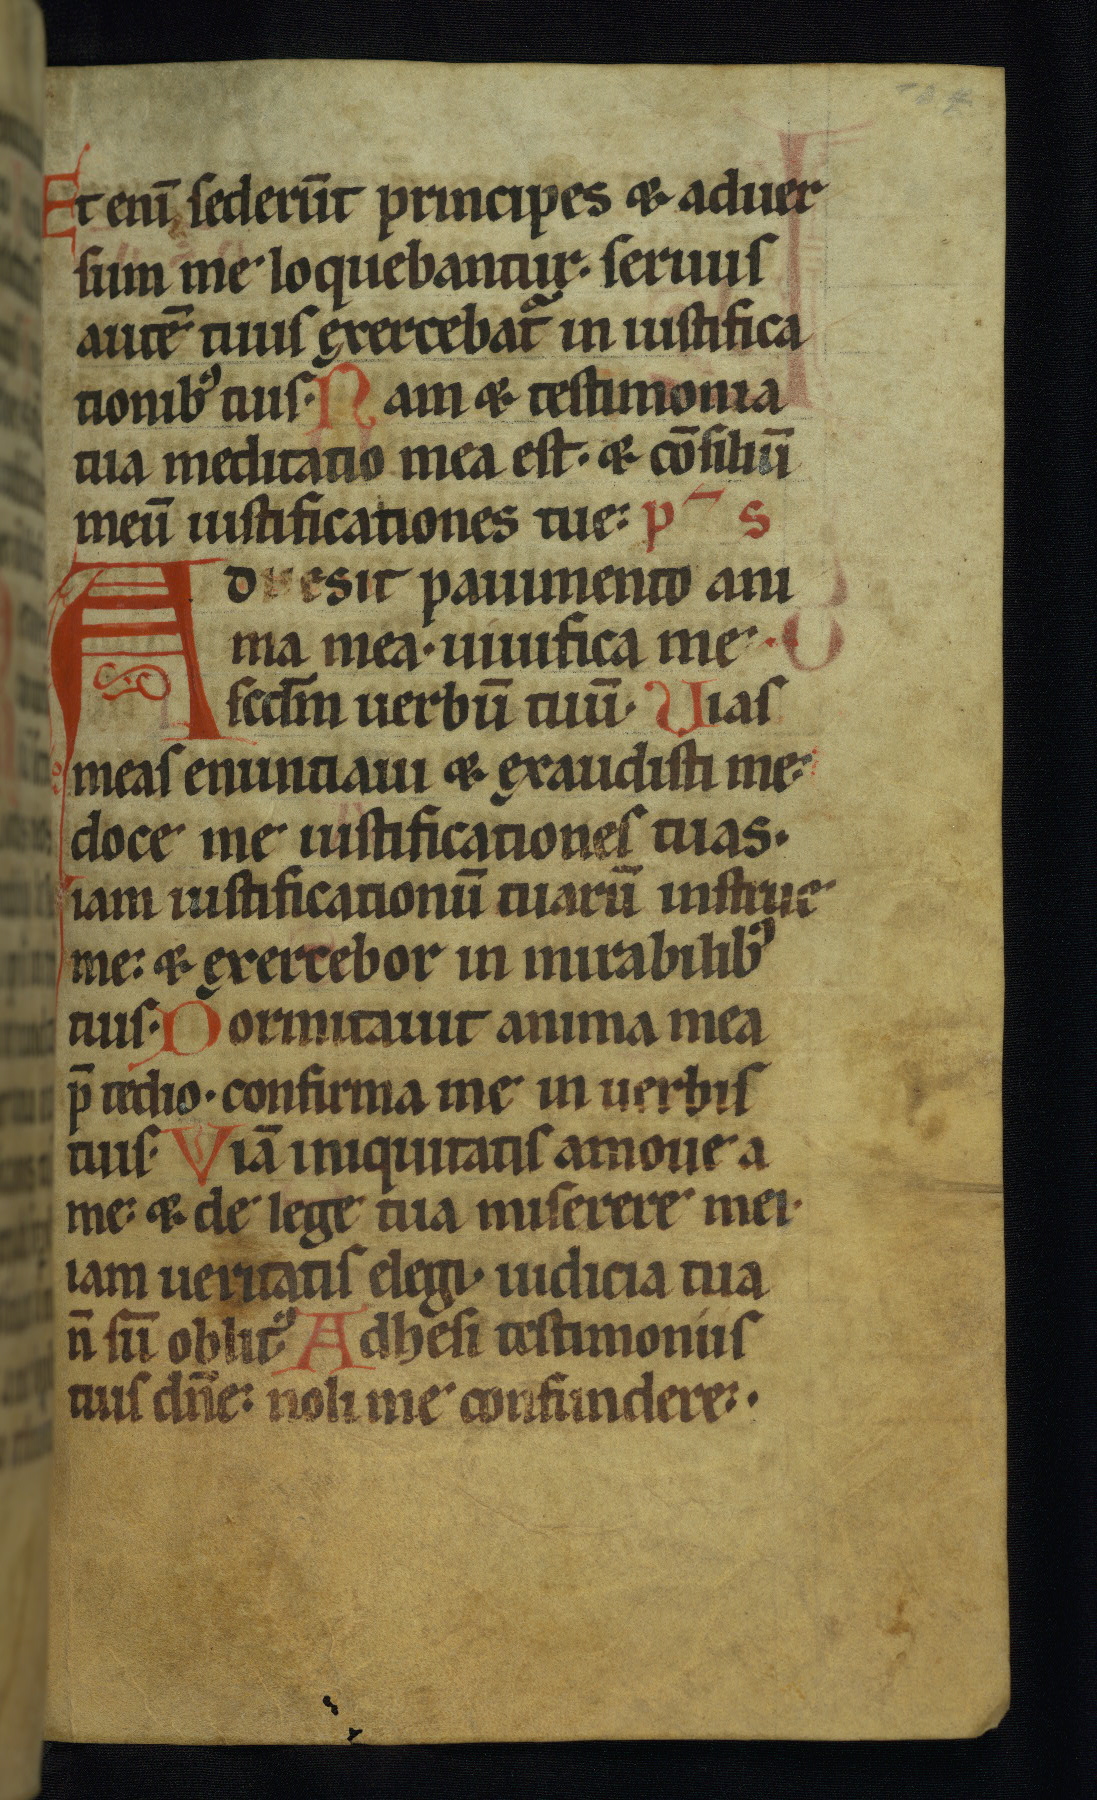 Et eni̅ sederu̅t principes & aduer
sum me loquebantur. seruus
aute̅ tuus exercebat᷑ in iustifica
tionibꝰ tuis. Nam & testimonia
tua meditatio mea est. & co̅siliu̅
meu̅ iustificationes tue: p̅ s
Adhesit pauimento ani
ma mea. uiuifica me
scd̅m uerbu̅ tuu̅. Uias
meas enuntiaui & exaudisti me:
doce me iustificationes tuas.
iam iustificationu̅ tuaru̅ instrue
me: & exercebor in mirabilibꝰ
tuis. Dormitauit anima mea
p̅ tedio. confirma me in uerbis
tuis. Via̅ iniquitatis amoue a
me: & de lege tua miserere mei.
iam ueritatis elegi. iudicia tua
n̅ su̅ oblitꝰ Adhesi testimoniis
tuis dn̅e: noli me confundere:.